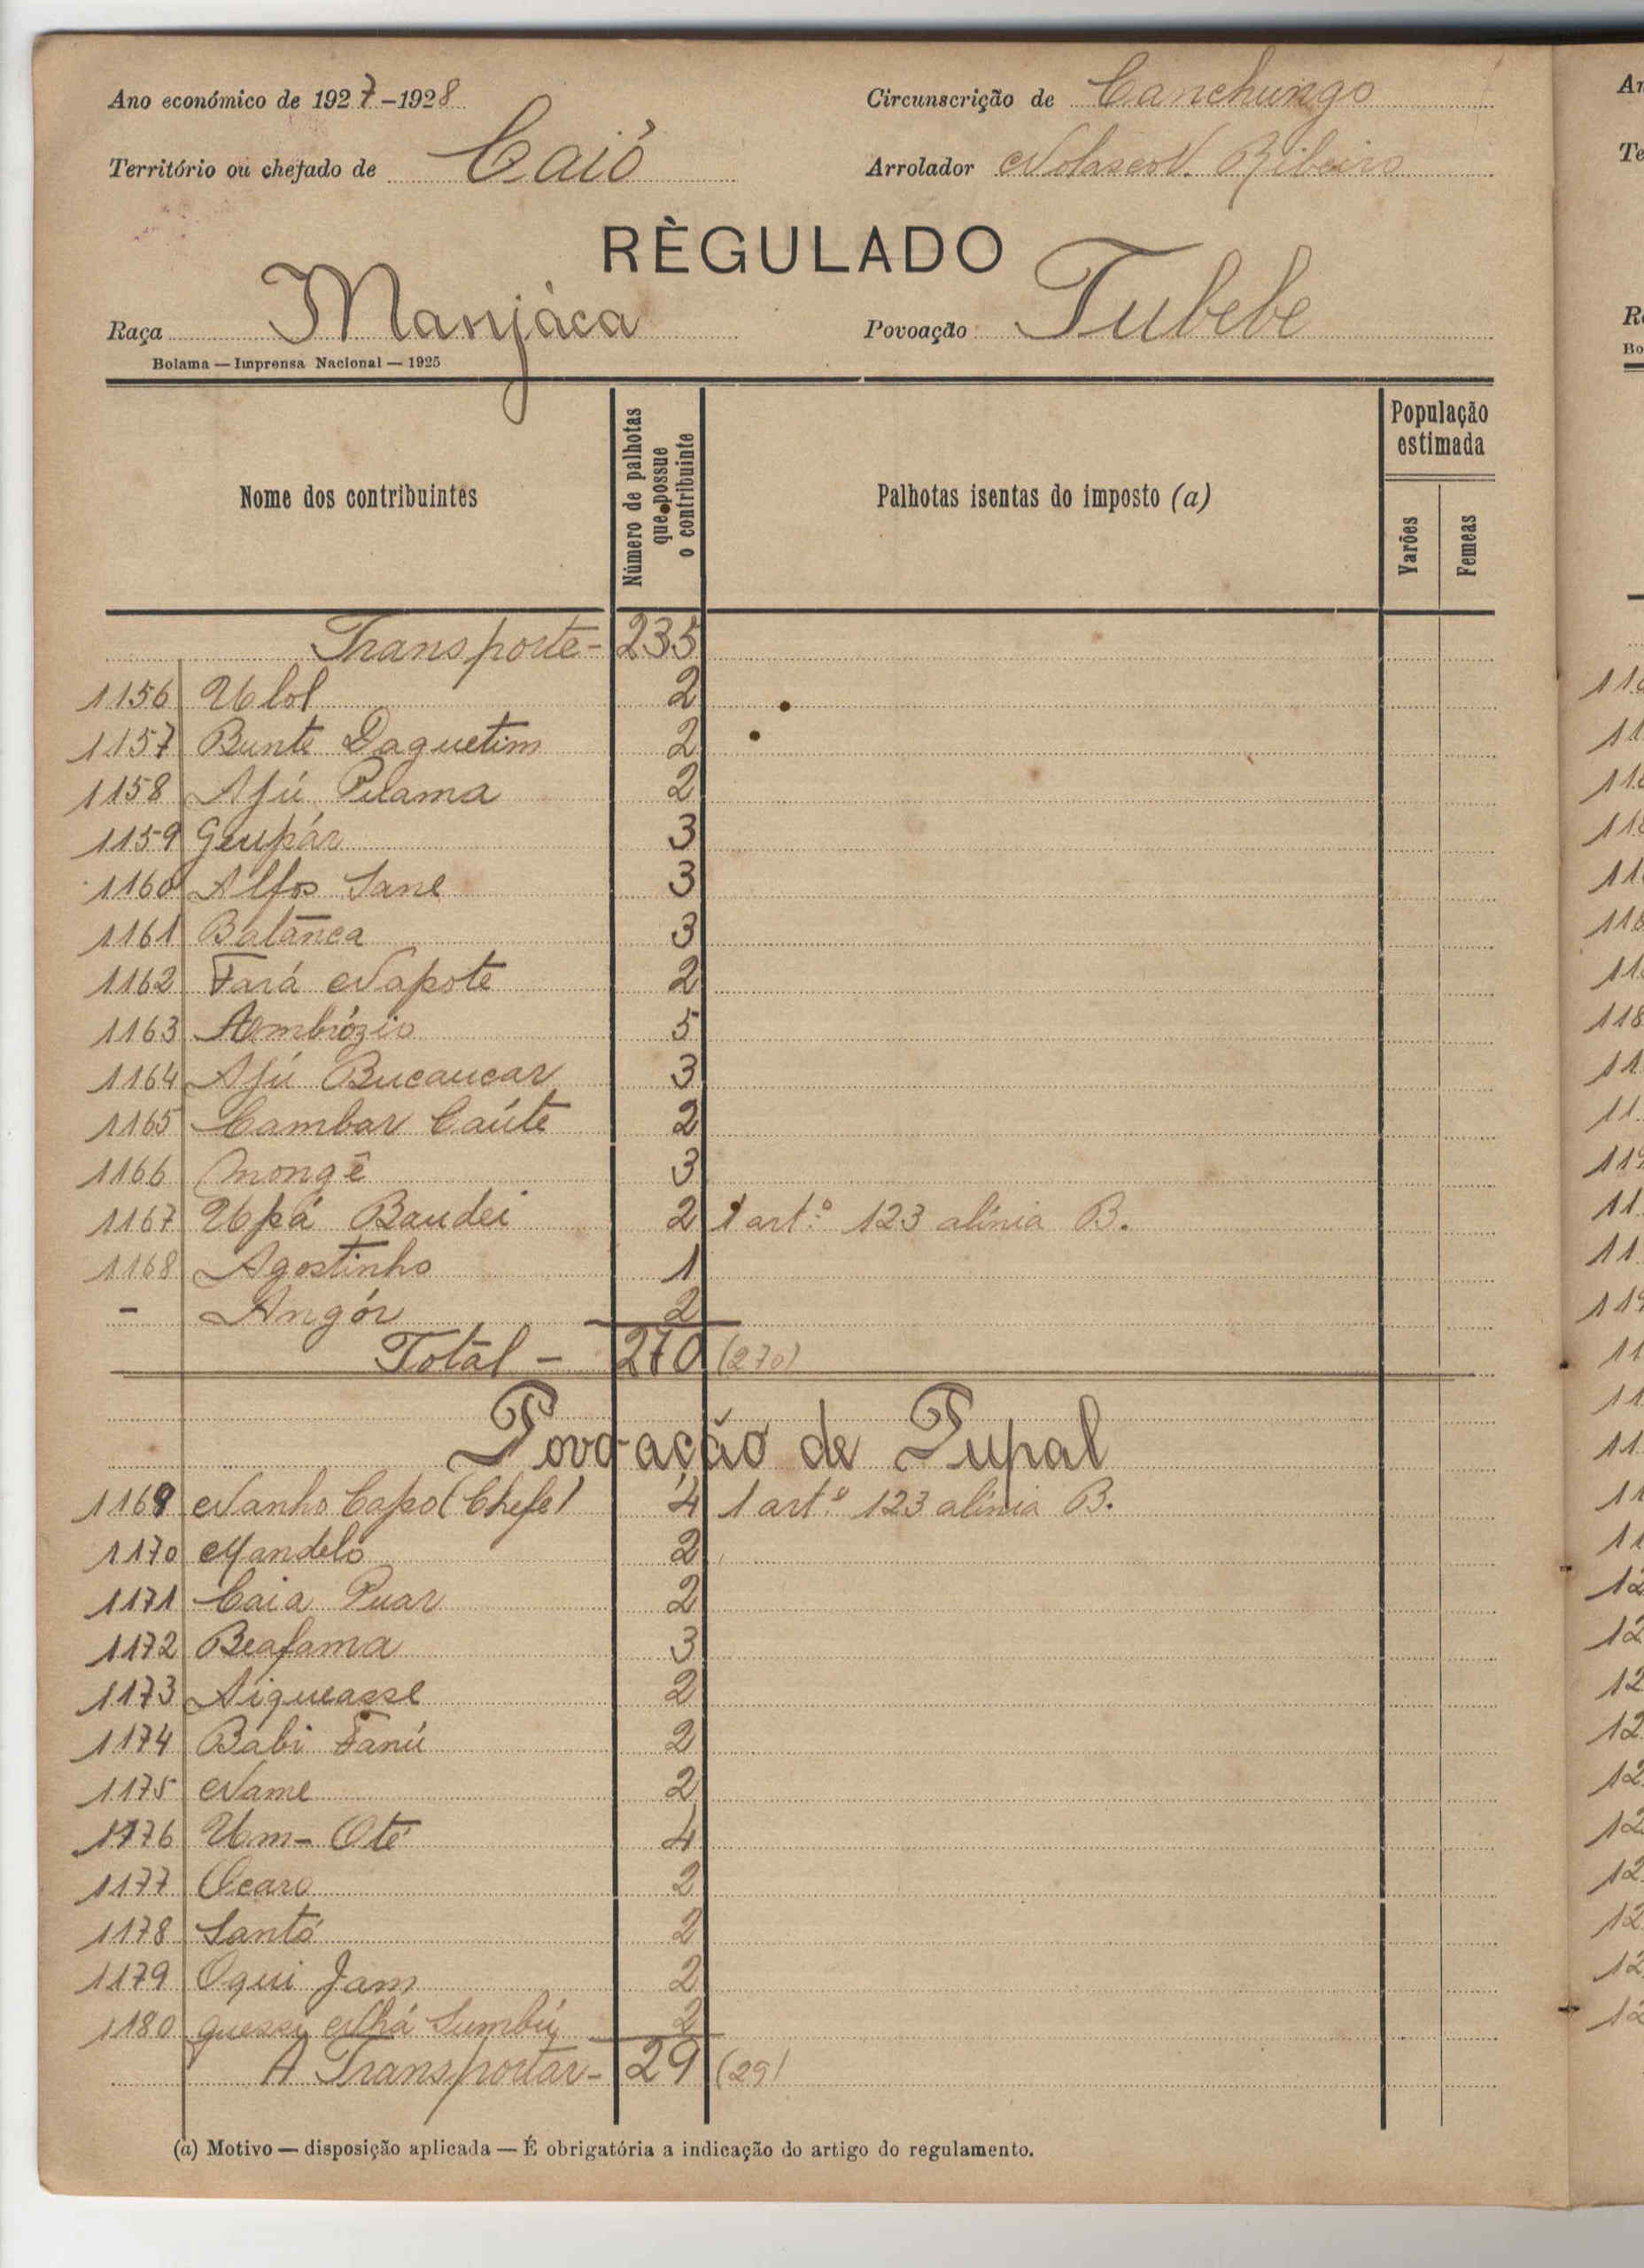 Ano económico de 1927-1928
Circunscrição de Canchungo
Território ou chefado de Caió
Arrolador Nolasco V. Ribeiro
RÈGULADO
Raça Manjáca
Povoação Tubebe
Bolama — Imprensa Nacional — 1925
Nome dos contribuintes
Número de palhotas que possue o contribuinte
Palhotas isentas do imposto (a)
População estimada
Varões
Femeas
Transporte - 235
1156 Ulol 2
1157 Bunte Daguetim 2
1158 Afú Pilama 2
1159 Geupár 3
1160 Alfos Sane 3
1161 Batanca 3
1162 Fará Napote 2
1163 Ambrózio 5
1164 Afú Bucaucar 3
1165 Cambar Caúte 2
1166 Mongê 3
1167 Upá Baudei 2 1 art.º 123 alínia B.
1168 Agostinho 1
- Angór 2
Total - 270 (270)
Povoação de Pupal
1169 Nanho Capo (Chefe) 4 1 art.º 123 alínia B.
1170 Mandelo 2
1171 Caia Puar 2
1172 Beafama 3
1173 Aigueasse 2
1174 Babi Fanú 2
1175 Name 2
1176 Um-Oté 4
1177 Ocaro 2
1178 Santó 2
1179 Oqui Jam 2
1180 guessy Nhá Sumbú 2
A Transportar - 29 (29)
(a) Motivo — disposição aplicada — É obrigatória a indicação do artigo do regulamento.